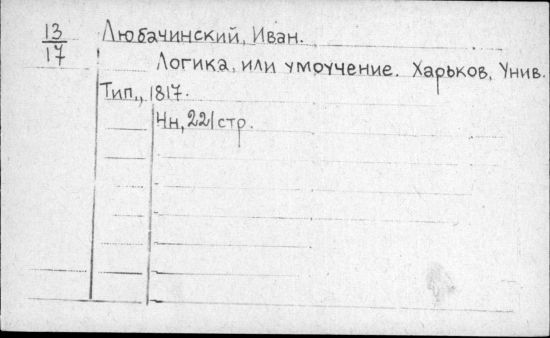 13
17
Любачинский, Иван.
Логика, или умоучение. Харьков, Унив.
Тип., 1817.
4н, 221 стр.